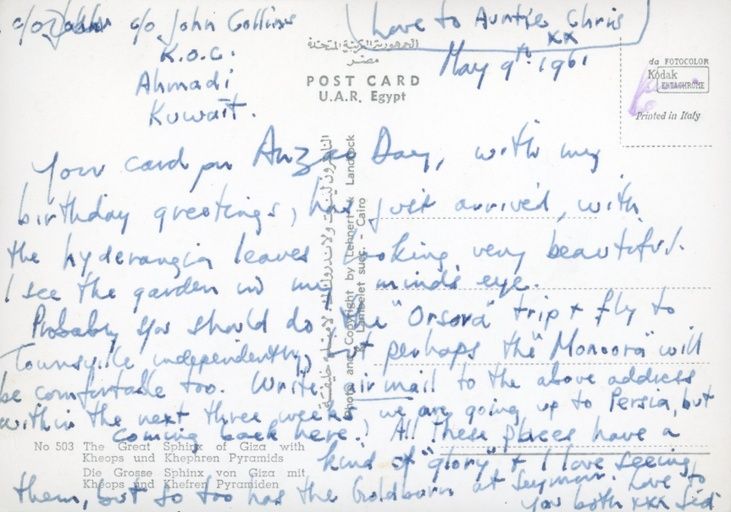 c/o John c/o John Collins
K.O.C.
Ahmadi
Kuwait.
Love to Aunties Chris
xx
May 9th 1961
الجمهورية العربية المتحدة
مصر
POST CARD
U.A.R. Egypt
da FOTOCOLOR
Kodak
EKTACHROME
Printed in Italy
Your card on Anzac Day, with my
birthday greetings, has just arrived, with
the hyderangia leaves looking very beautiful.
I see the garden in my mind's eye.
Probably you should do the "Orsova" trip & fly to
Townsville independently, but perhaps the "Manoora" will
be comfortable too. Write air mail to the above address
within the next three weeks, we are going up to Persia, but
coming back here! All these places have a
kind of "glory" & I love seeing
them, but so too has the Goldborn at Seymour. Love to
you both xxx Sid
Photo and Copyright by Lehnert & Landrock
Lambelet succ. - Cairo
No 503 The Great Sphinx of Giza with
Kheops und Khephren Pyramids
Die Grosse Sphinx von Giza mit
Kheops und Khefren Pyramiden